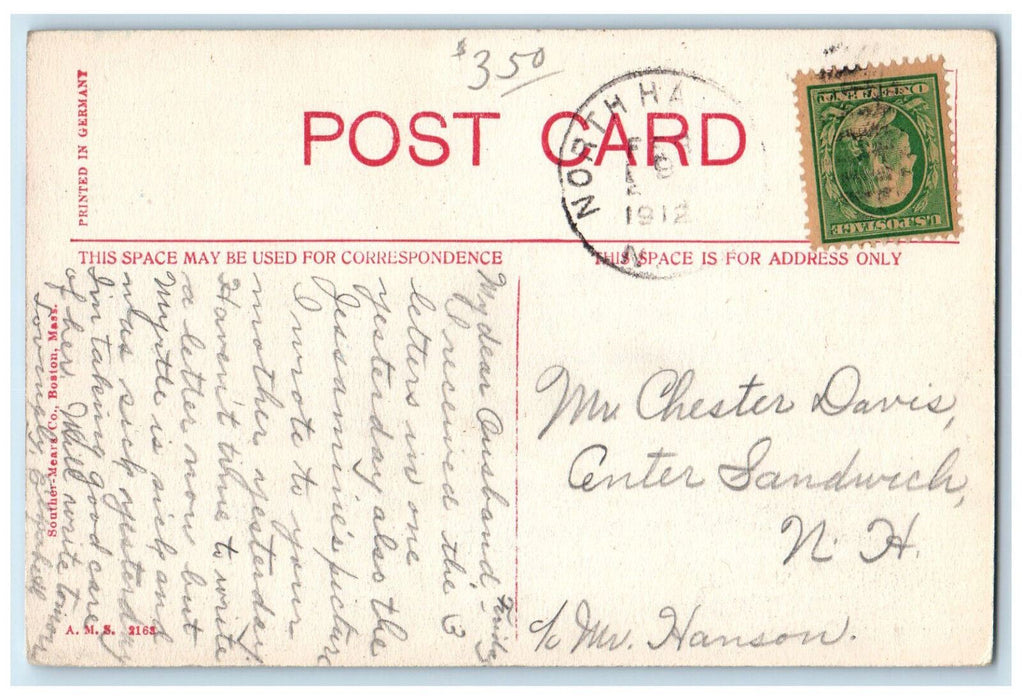 $3.50
PRINTED IN GERMANY
POST CARD
NORTH HA
FEB
9
A
1912
N
ONE CENT
U.S. POSTAGE
THIS SPACE MAY BE USED FOR CORRESPONDENCE
THIS SPACE IS FOR ADDRESS ONLY
My dear Husband - Friday
I received the 3
letters in one
yesterday also the
Jessamine's picture
I wrote to your
mother yesterday.
Haven't time to write
a letter now but
Myrtle is sick and
was sick yesterday
I'm taking good care
of her. Will write tomorrow
Lovingly
Mr. Chester Davis,
Center Sandwich,
N. H.
c/o Mr. Hanson.
Souther-Mears Co., Boston, Mass.
A. M. S. 2163